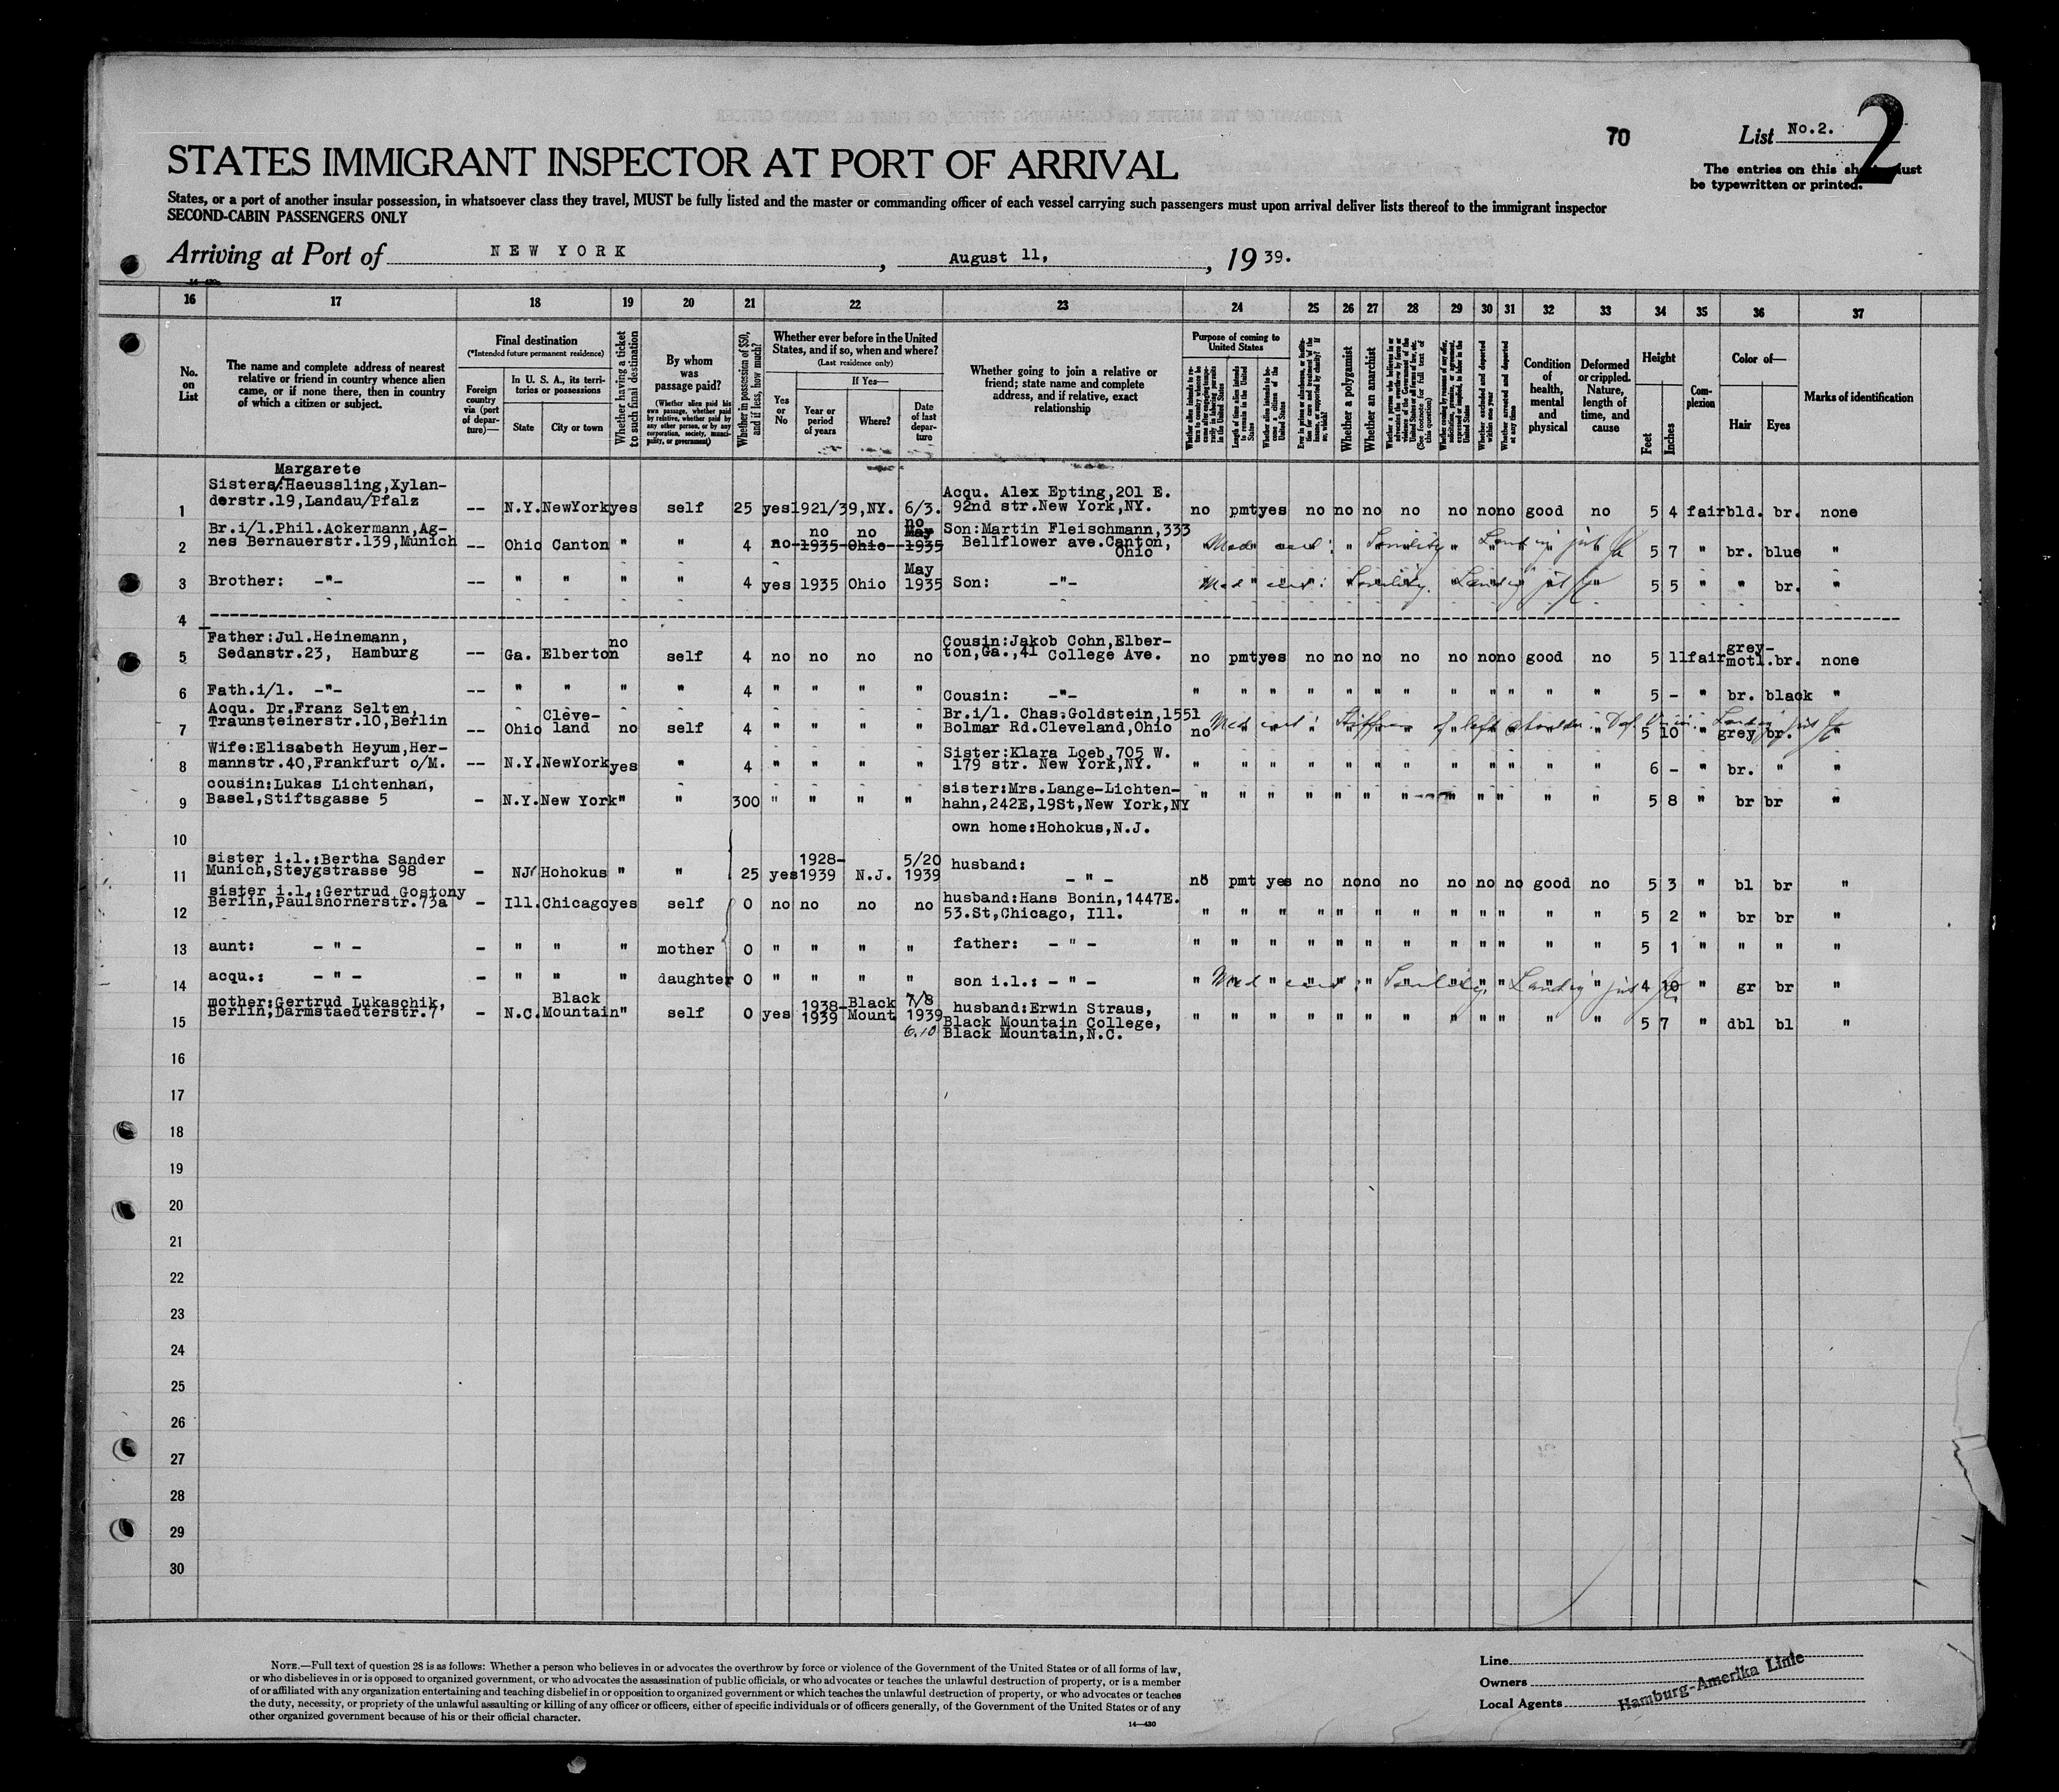 70
List No.2.
2
The entries on this sheet must
be typewritten or printed.
STATES IMMIGRANT INSPECTOR AT PORT OF ARRIVAL
States, or a port of another insular possession, in whatsoever class they travel, MUST be fully listed and the master or commanding officer of each vessel carrying such passengers must upon arrival deliver lists thereof to the immigrant inspector
SECOND-CABIN PASSENGERS ONLY
Arriving at Port of NEW YORK, August 11, 1939.
16 17 18 19 20 21 22 23 24 25 26 27 28 29 30 31 32 33 34 35 36 37
No. on List
The name and complete address of nearest
relative or friend in country whence alien
came, or if none there, then in country
of which a citizen or subject.
Final destination
(*Intended future permanent residence)
Foreign country via (port of departure)—
In U. S. A., its territories or possessions
State
City or town
Whether having a ticket to such final destination
By whom was passage paid?
(Whether alien paid his own passage, whether paid by relative, whether paid by any other person, or by any corporation, society, municipality, or government)
Whether in possession of $50, and if less, how much?
Whether ever before in the United States, and if so, when and where?
(Last residence only)
Yes or No
If Yes—
Year or period of years
Where?
Date of last departure
Whether going to join a relative or
friend; state name and complete
address, and if relative, exact
relationship
Purpose of coming to United States
Length of time alien intends to remain in the United States
Whether alien intends to become a citizen of the United States
Whether a polygamist
Whether an anarchist
Whether excluded and deported within one year
Whether arrested and deported at any time
Condition of health, mental and physical
Deformed or crippled. Nature, length of time, and cause
Height
Feet
Inches
Complexion
Color of—
Hair
Eyes
Marks of identification
Margarete
1 Sisters/:Haeussling,Xylan-
derstr.19,Landau/Pfalz -- N.Y. NewYork yes self 25 yes 1921/39,NY. 6/3. Acqu. Alex Epting,201 E.
92nd str.New York,NY. no pmt yes no no no no no no no good no 5 4 fair bld. br. none
2 Br.i/l.Phil.Ackermann,Ag-
nes Bernauerstr.139,Munich -- Ohio Canton " " 4 no no no no
1935 Ohio May 1935 Son:Martin Fleischmann,333
Bellflower ave.Canton,
Ohio Med cert: Senility Landing 5 7 " br. blue "
3 Brother: -"- -- " " " " 4 yes 1935 Ohio May 1935 Son: -"- Med cert: Senility. Landing 5 5 " " br. "
4
5 Father:Jul.Heinemann,
Sedanstr.23, Hamburg -- Ga. Elberton no self 4 no no no no Cousin:Jakob Cohn,Elber-
ton,Ga.,41 College Ave. no pmt yes no no no no no no no good no 5 11 fair grey-
motl. br. none
6 Fath.i/l. -"- -- " " " " 4 " " " " Cousin: -"- " " " " " " " " " " " " 5 - " br. black "
7 Acqu. Dr.Franz Selten,
Traunsteinerstr.10,Berlin -- Ohio Cleve-
land no self 4 " " " " Br.i/l. Chas.Goldstein,1551
Bolmar Rd.Cleveland,Ohio no Med cert: Stiffness of left shoulder. Landing 5 10 " grey br. "
8 Wife:Elisabeth Heyum,Her-
mannstr.40,Frankfurt o/M. -- N.Y. NewYork yes " 4 " " " " Sister:Klara Loeb,705 W.
179 str. New York,NY. " " " " " " " " " " " " 6 - " br. " "
9 cousin:Lukas Lichtenhan,
Basel,Stiftsgasse 5 - N.Y. New York " " 300 " " " " sister:Mrs.Lange-Lichten-
hahn,242E,19St,New York,NY " " " " " " " " " " " " 5 8 " br br "
10 own home:Hohokus,N.J.
11 sister i.l.:Bertha Sander
Munich,Steygstrasse 98 - NJ Hohokus " " 25 yes 1928-
1939 N.J. 5/20
1939 husband:
- " - no pmt yes no no no no no no no good no 5 3 " bl br "
12 sister i.l.:Gertrud Gostony
Berlin,Paulsnornerstr.73a - Ill. Chicago yes self 0 no no no no husband:Hans Bonin,1447E.
53.St,Chicago, Ill. " " " " " " " " " " " " 5 2 " br br "
13 aunt: - " - - " " " mother 0 " " " " father: - " - " " " " " " " " " " " " 5 1 " " " "
14 acqu.: - " - - " " " daughter 0 " " " " son i.l.: - " - " Med cert: Senility. Landing 4 10 " gr br "
15 mother:Gertrud Lukaschik,
Berlin,Darmstaedterstr.7 - N.C. Black
Mountain " self 0 yes 1938-
1939 Black
Mount 7/8
1939
6.10 husband:Erwin Straus,
Black Mountain College,
Black Mountain,N.C. " " " " " " " " " " " " 5 7 " dbl bl "
16
17
18
19
20
21
22
23
24
25
26
27
28
29
30
NOTE.—Full text of question 28 is as follows: Whether a person who believes in or advocates the overthrow by force or violence of the Government of the United States or of all forms of law,
or who disbelieves in or is opposed to organized government, or who advocates the assassination of public officials, or who advocates or teaches the unlawful destruction of property, or is a member
of or affiliated with any organization entertaining and teaching disbelief in or opposition to organized government or which teaches the unlawful destruction of property, or who advocates or teaches
the duty, necessity, or propriety of the unlawful assaulting or killing of any officer or officers, either of specific individuals or of officers generally, of the Government of the United States or of any
other organized government because of his or their official character.
14—430
Line
Owners
Local Agents
Hamburg-Amerika Linie